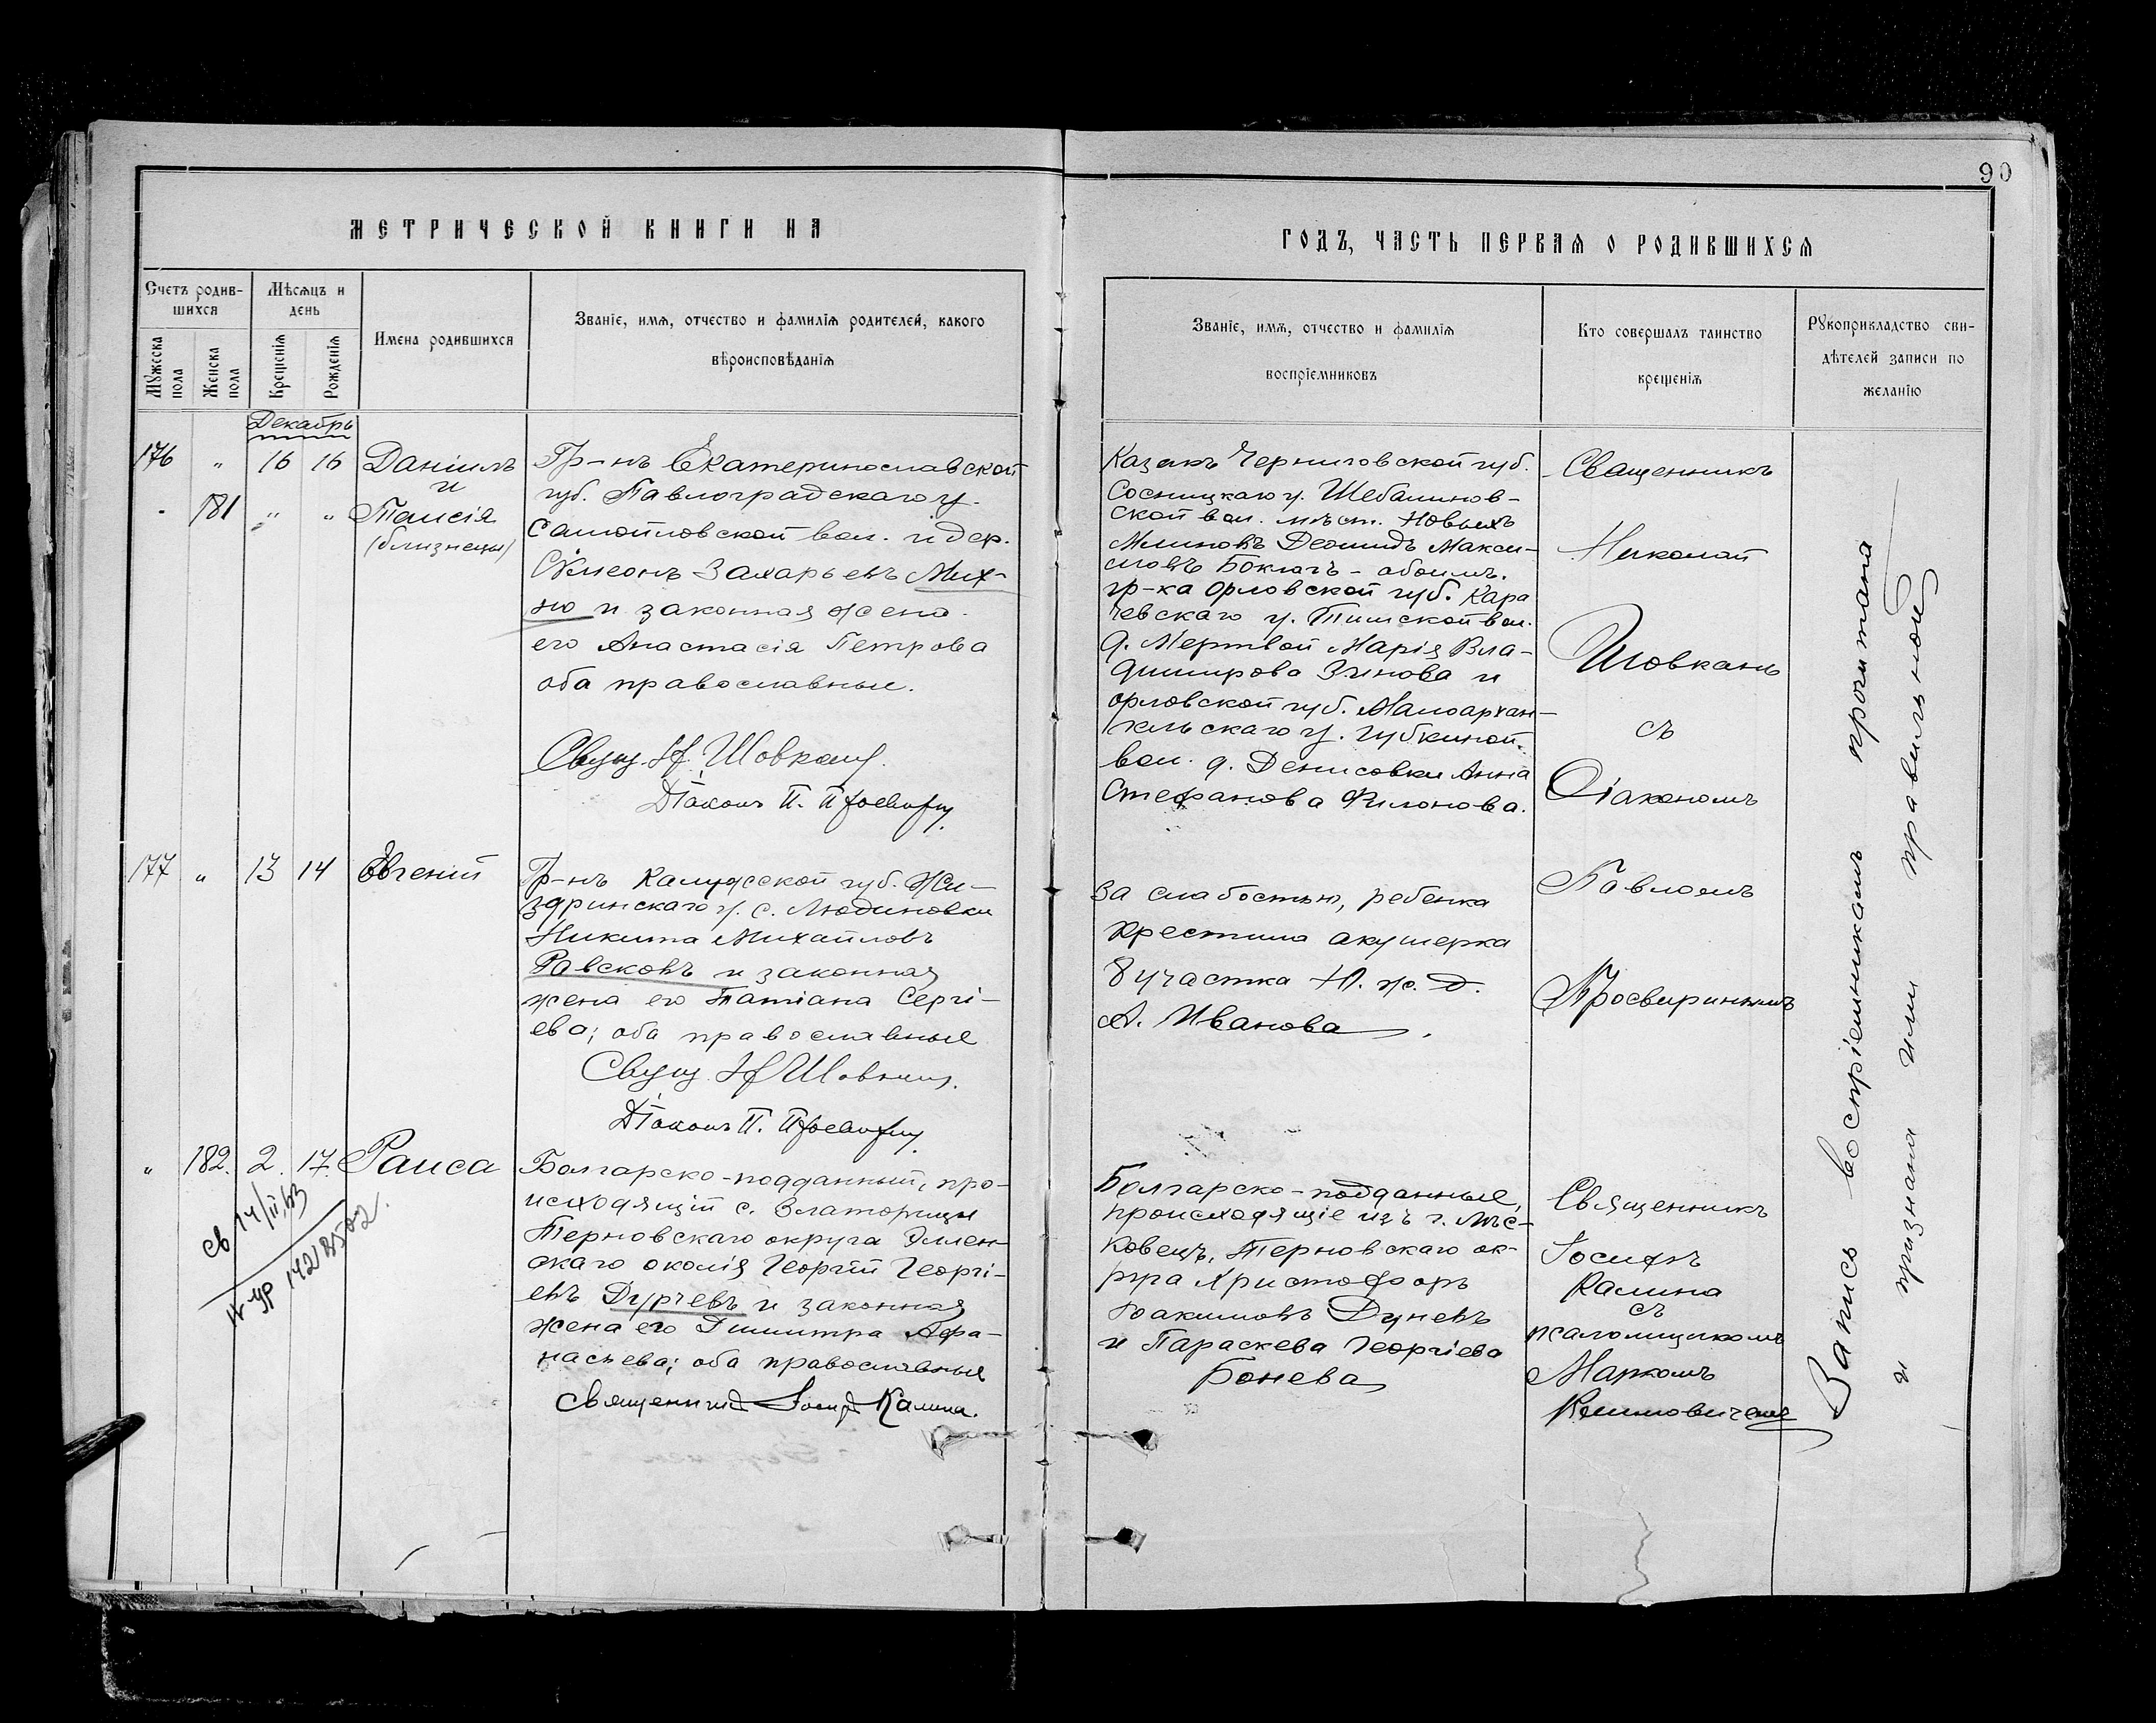 90
МЕТРИЧЕСКОЙ КНИГИ НА
ГОДЪ, ЧАСТЬ ПЕРВАЯ О РОДИВШИХСЯ
Счетъ родив-
шихся
Мѣсяцъ и
день
Мужеска пола
Женска пола
Крещенія
Рожденія
Имена родившихся
Званіе, имя, отчество и фамилія родителей, какого
вѣроисповѣданія
Званіе, имя, отчество и фамилія
воспріемниковъ
Кто совершалъ таинство
крещенія
Рукоприкладство сви-
дѣтелей записи по
желанію
Декабрь
176 " 16 16 Даніилъ
и
" 181 " " Таисія
(близнецы)
Гр-нъ Екатеринославской
губ. Павлоградскаго у.
Самойловской вол. и дер.
Сѵмеонъ Захарьевъ Мих-
но и законная жена
его Анастасія Петрова
оба православные.
Свящ. Н. Шовкан
Діаконъ П. Просвирн
Казакъ Черниговской губ.
Сосницкаго у.
ской вол. мѣст. Новыхъ
Млиновъ Макси-
мовъ
гр-ка Орловской губ. Кара
чевскаго у. вол.
д. Мертвой Марія Вла-
димирова Зинова и
Орловской губ. Малоархан-
гельскаго у. Губкиной
вол. д. Денисовки Анна
Стефанова Филонова.
Священникъ
Николай
Шовканъ
съ
Діакономъ
Павломъ
Просвиринымъ
177 " 13 14 Евгеній
Гр-нъ Калужской губ. Жи-
здринскаго у. с. Людиновки
Никита Михайловъ
Равсковъ и законная
жена его Татіана Сергі-
ева; оба православные
Свящ. Н Шовкан.
Діаконъ П. Просвирн
За слабостью, ребенка
крестила акушерка
8 участка Ю. ж. д.
А. Иванова.
" 182. 2. 17. Раиса
Болгарско-подданный, про-
исходящій с. Златорицы
Терновскаго округа Элен-
скаго околія Георгій Георгі-
евъ Дурчевъ и законная
жена его Димитра Афа-
насьева; оба православные
Священникъ Іосифъ Калина.
Болгарско-подданные,
происходящіе изъ г. Лѣс-
ковецъ, Терновскаго ок-
руга Христофоръ
Іоакимовъ Дуневъ
и Параскева Георгіева
Бонева
Священникъ
Іосифъ
Калина
съ
псаломщикомъ
Маркомъ
Климовичемъ
св 14/II,63
Запись воспріемникамъ прочитана
и признана ими правильной